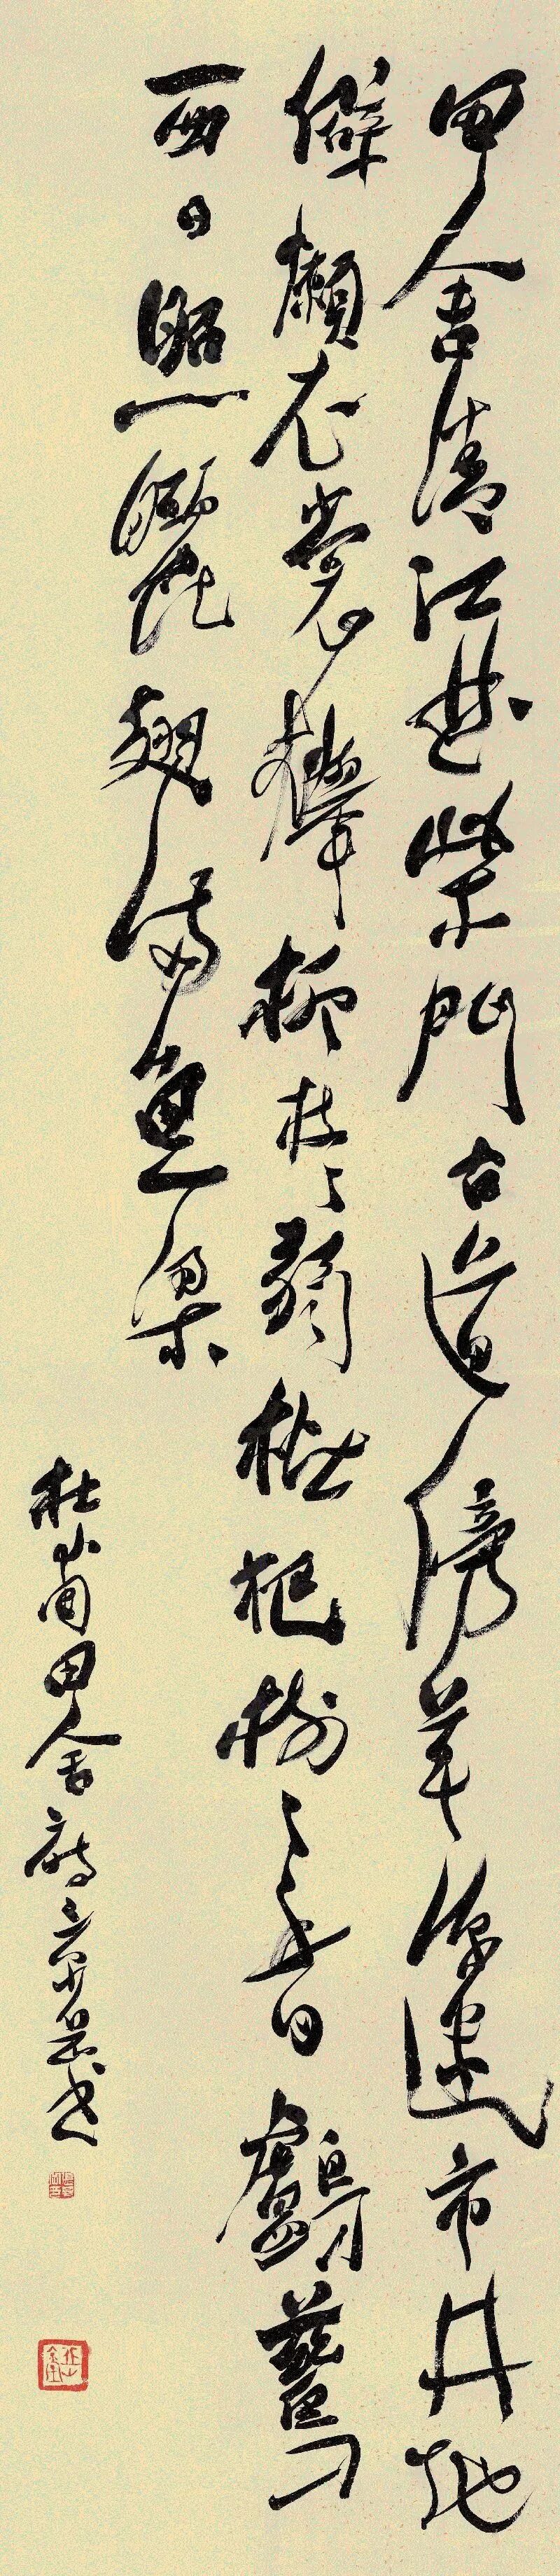 田舍清江曲柴門古道傍草深迷市井地
僻懶衣裳櫸柳枝〻弱枇杷樹〻香鸕鶿
西日照曬翅滿魚梁
杜甫田舍詩